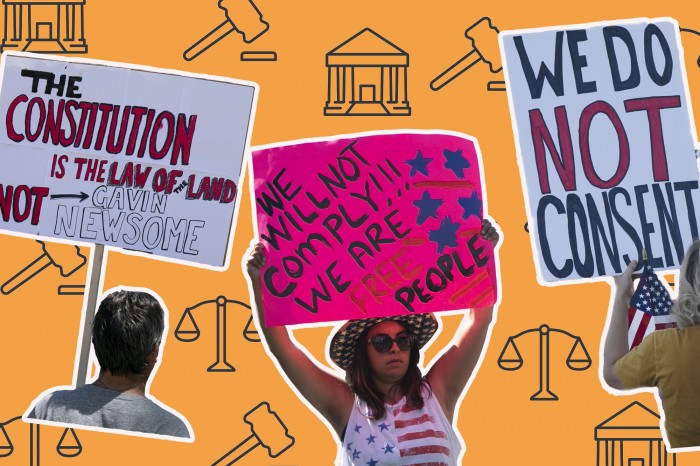 THE
CONSTITUTION
IS THE LAW OF THE LAND
NOT → GAVIN
NEWSOME
WE
WILL NOT
COMPLY!!!
WE ARE
FREE
PEOPLE
WE DO
NOT
CONSENT